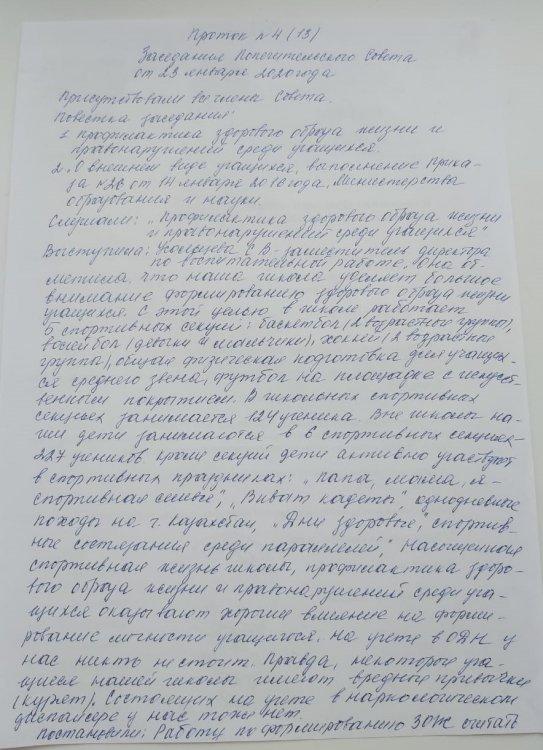 Проток № 4 (13)
Заседания Попечительского Совета
от 23 января 2020 года
Присутствовали все члены Совета.
Повестка заседания:
1. Профилактика здорового образа жизни и
правонарушений среди учащихся.
2. О внешнем виде учащихся, выполнение Прика-
за № 26 от 14 января 2016 года, Министерства
образования и науки.
Слушали: „Профилактика здорового образа жизни
и правонарушений среди учащихся"
Выступила: В- заместитель директора
по воспитательной работе. Она от-
метила, что наша школа уделяет большое
внимание формированию здорового образа жизни
учащихся. С этой целью в школе работает
5 спортивных секций: баскетбол (2 возрастные группы),
волейбол (девочки и мальчики), хоккей (2 возрастные
группы), общая физическая подготовка для учащих-
ся среднего звена, футбол на площадке с искусст-
венным покрытием. В школьных спортивных
секциях занимается 124 ученика. Вне школы на-
ши дети занимаются в 6 спортивных секциях-
227 учеников. Кроме секций дети активно участвуют
в спортивных праздниках: „Папа, мама, я-
спортивная семья", „Виват кадеты" однодневные
походы на г. Казахстан, „Дни здоровья", „спортив-
ные состязания среди параллелей", Насыщенная
спортивная жизнь школы, профилактика здоро-
вого образа жизни и правонарушений среди уча-
щихся оказывают хорошее влияние на форми-
рование личности учащегося. На учете в ОДН у
нас никто не стоит. Правда, некоторые уча-
щиеся нашей школы имеют вредные привычки
(курят). Состоящих на учете в наркологическом
диспансере у нас тоже нет.
Постановили: Работу по формированию ЗОЖ считать